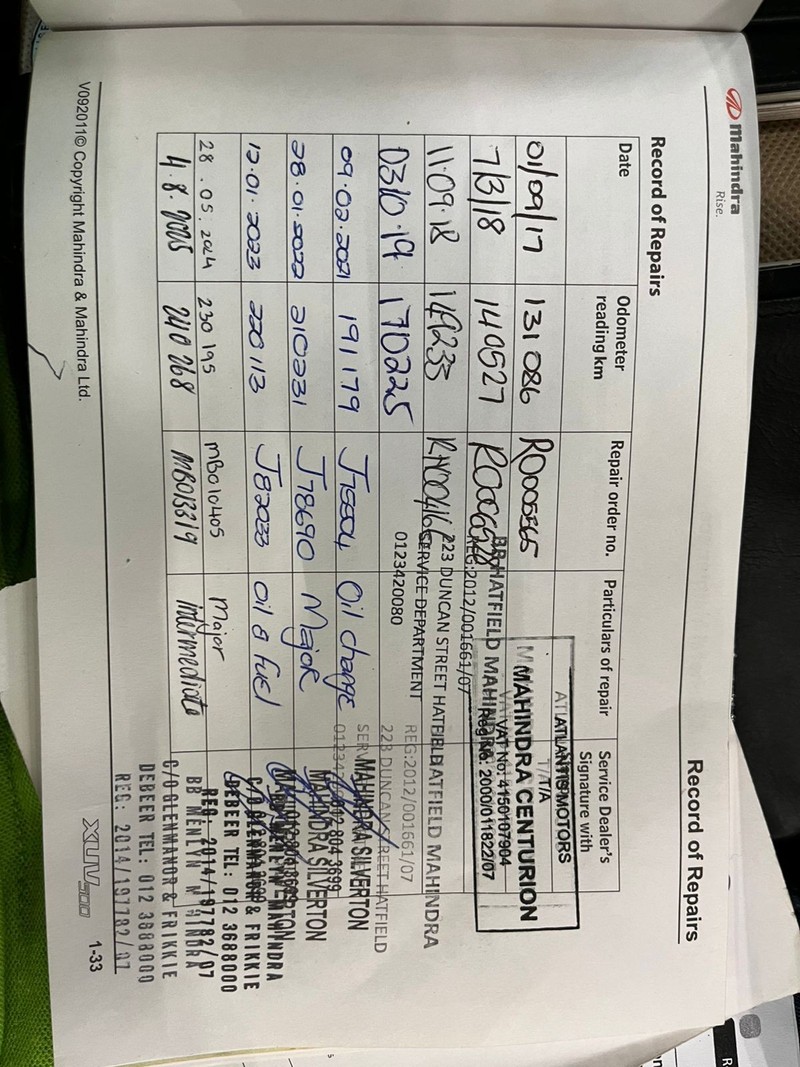 mahindra
Rise.
Record of Repairs
Record of Repairs
Date Odometer reading km Repair order no. Particulars of repair Service Dealer's Signature with
01/09/17 131 086 RO005565
7/3/18 140527 RO006528
11.09.18 149235
03/10.19 170225
09.02.2021 191179 Oil change
28.01.2022 210231 J78690 Major
12.01.2023 220113 J82033 oil & fuel
28.05.2024 230 195 MB010405 Major
4.8.2025 240 268 MB013319 intermediate
ATLANTIS MOTORS
T/A
MAHINDRA CENTURION
VAT No: 4150107904
Reg No: 2000/011822/07
BB HATFIELD MAHINDRA
REG:2012/001661/07
223 DUNCAN STREET HATFIELD
SERVICE DEPARTMENT
0123420080
HATFIELD MAHINDRA
REG:2012/001661/07
223 DUNCAN STREET HATFIELD
MAHINDRA SILVERTON
012 804 3699
MAHINDRA SILVERTON
C/O GLENMANOR & FRIKKIE
DEBEER TEL: 012 3688000
REG: 2014/197782/07
BB MENLYN MAHINDRA
C/O GLENMANOR & FRIKKIE
DEBEER TEL: 012 3688000
REG: 2014/197782/07
V092011© Copyright Mahindra & Mahindra Ltd.
XUV500
1-33